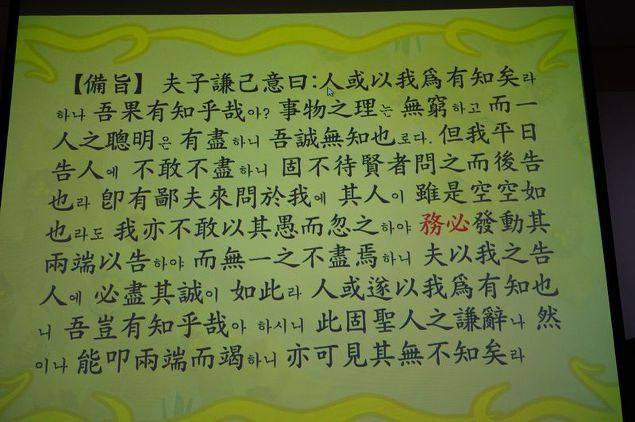 【備旨】 夫子謙己意曰:人或以我爲有知矣라
하나 吾果有知乎哉아? 事物之理는 無窮하고 而一
人之聰明은 有盡하니 吾誠無知也로다. 但我平日
告人에 不敢不盡하니 固不待賢者問之而後告
也라 卽有鄙夫來問於我에 其人이 雖是空空如
也라도 我亦不敢以其愚而忽之하야 務必發動其
兩端以告하야 而無一之不盡焉하니 夫以我之告
人에 必盡其誠이 如此라 人或遂以我爲有知也
니 吾豈有知乎哉아 하시니 此固聖人之謙辭나 然
이나 能叩兩端而竭하니 亦可見其無不知矣라